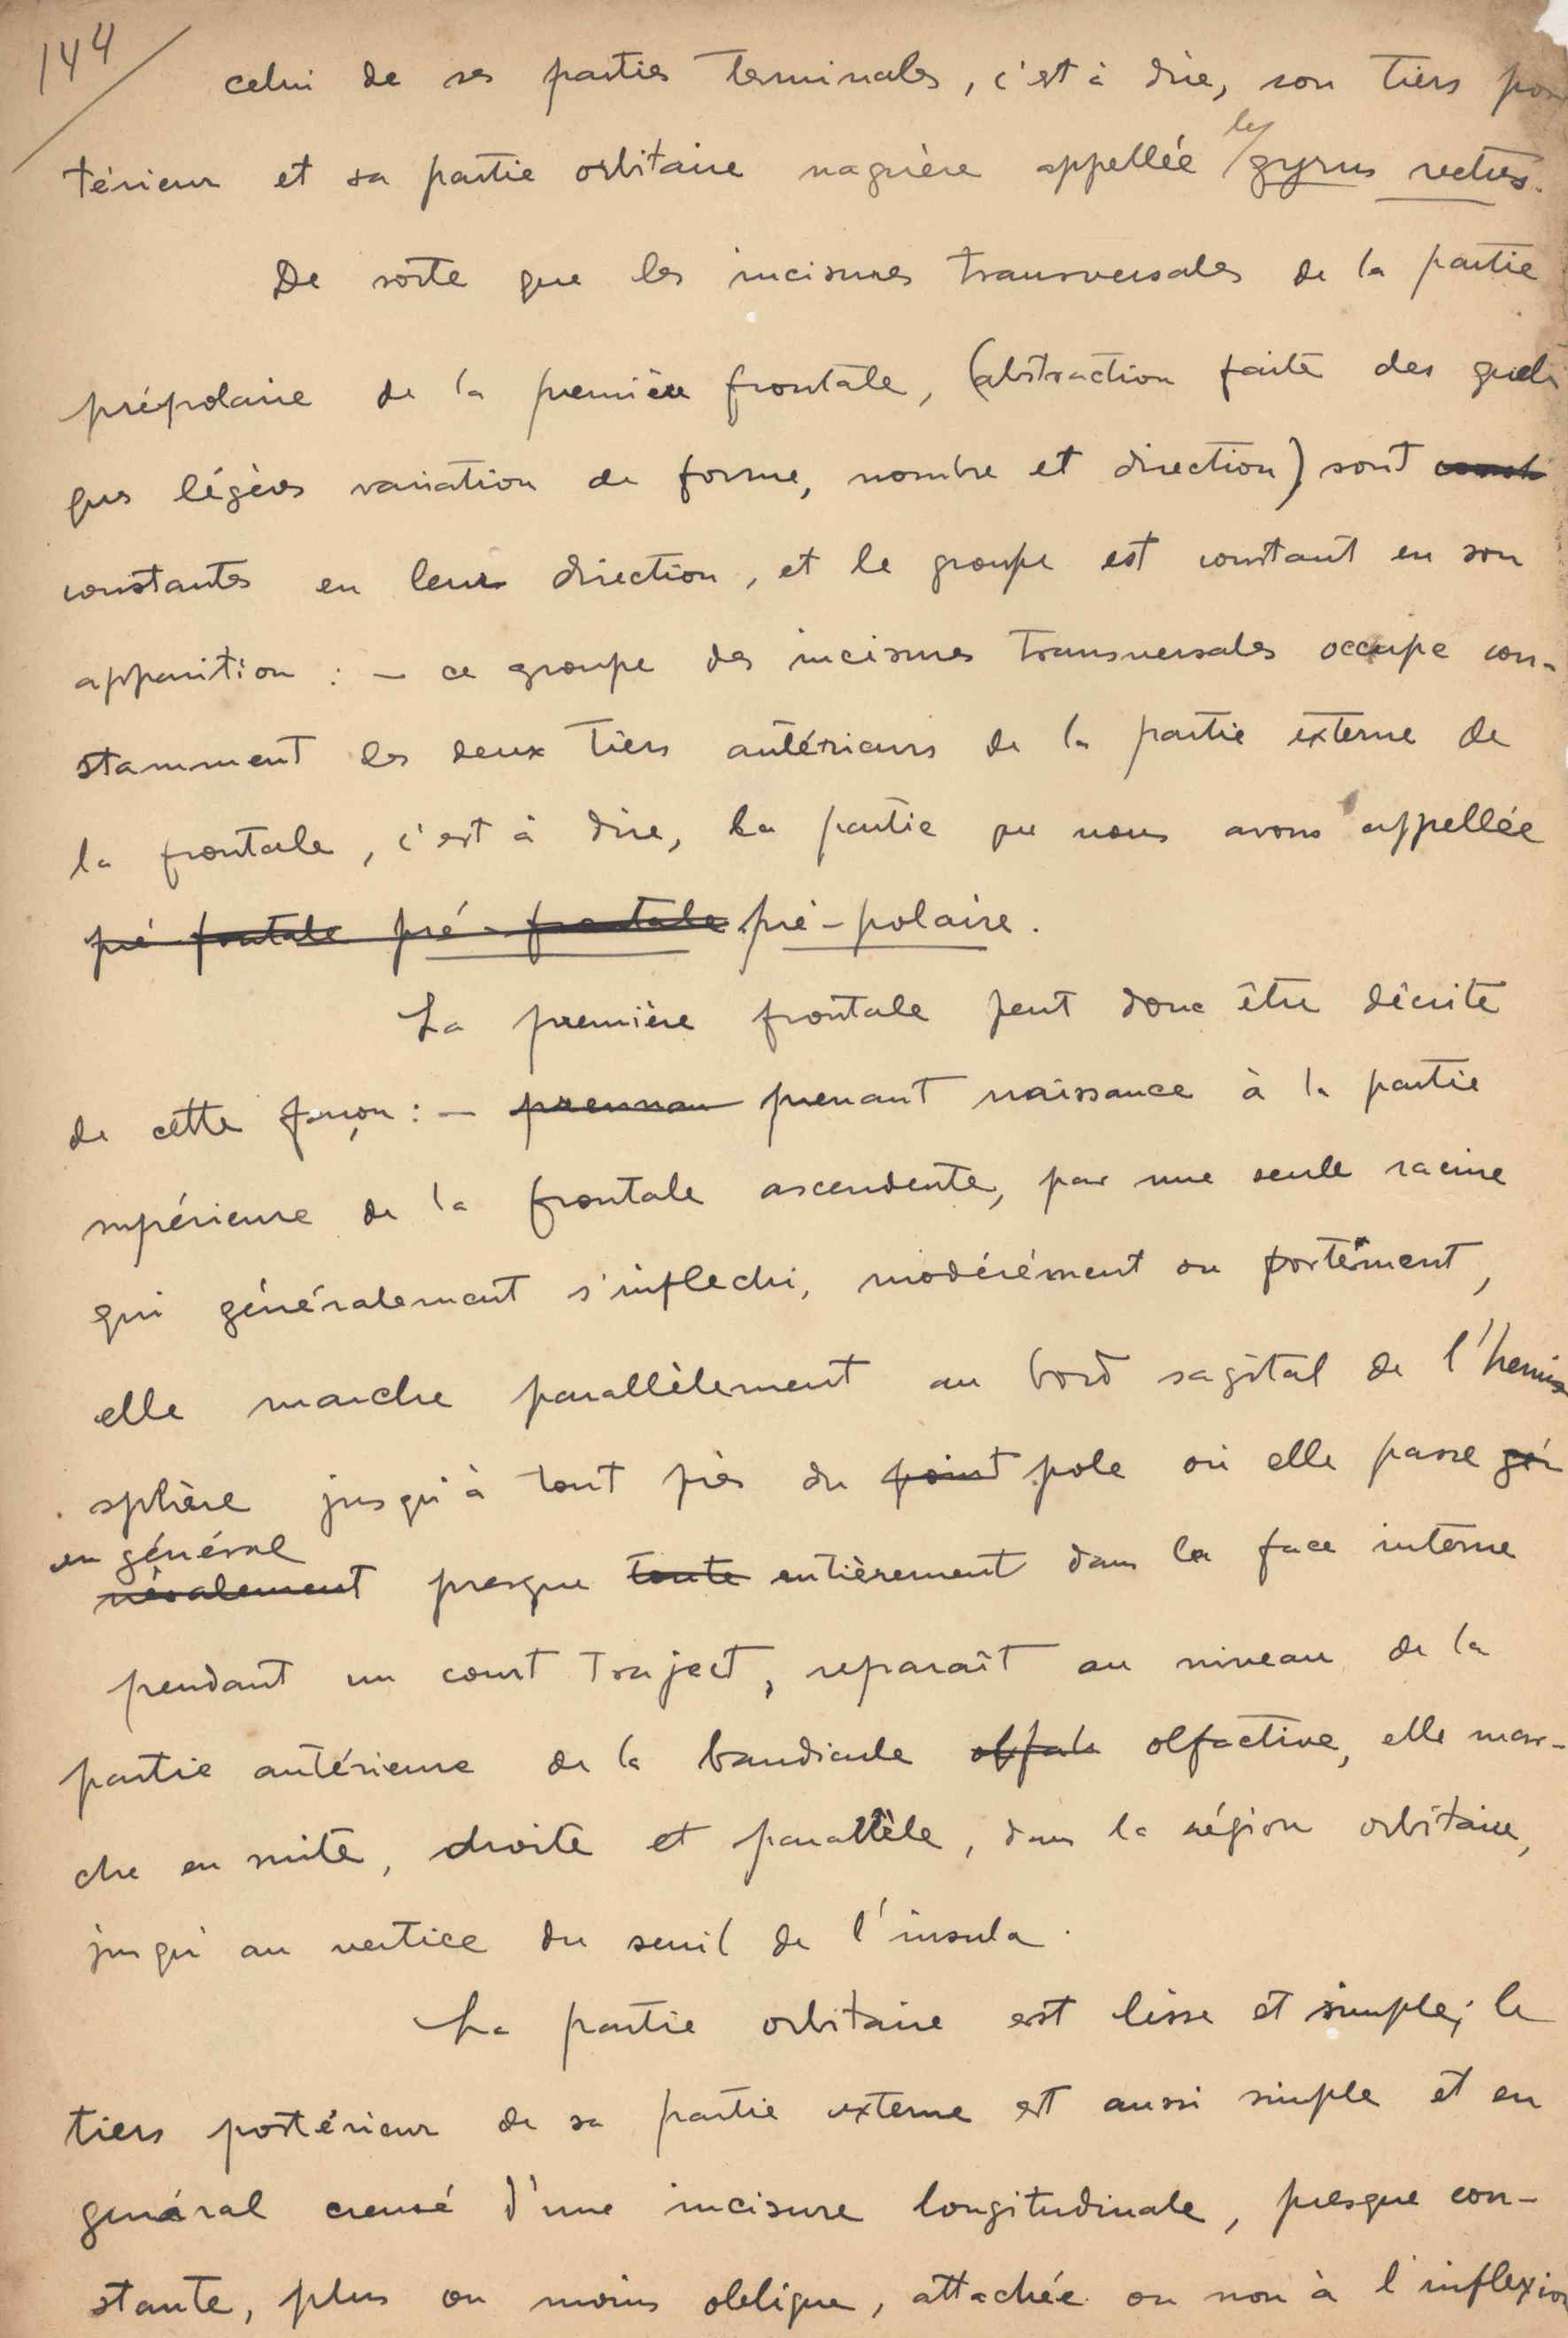 144
celui de ses parties terminales, c'est à dire, son tiers pos
térieur et sa partie orbitaire naguère appellée le gyrus rectus.
De sorte que les incisures transversales de la partie
prépolaire de la première frontale, (abstraction faite des quel
ques légères variation de forme, nombre et direction) sont
constantes en leur direction, et le groupe est constant en son
apparition : — ce groupe des incisures transversales occupe con-
stamment les deux tiers antérieurs de la partie externe de
la frontale, c'est à dire, la partie que nous avons appellée
pré frontale pré-frontale pré-polaire.
La première frontale peut donc être décrite
de cette façon : — prennan prenant naissance à la partie
supérieure de la frontale ascendente, par une seule racine
qui généralement s'inflechi, modérément ou fortement,
elle marche parallèlement au bord sagital de l'hemis
sphère jusqu'à tout près du point pole où elle passe gén
en général
néralement presque toute entièrement dans la face interne
pendant un court traject, reparaît au niveau de la
partie antérieure de la bandicule olfactive, elle mar-
che en suite, droite et parallèle, dans la région orbitaire,
jusqu'au vertice du seuil de l'insula.
La partie orbitaire est lisse et simple; le
tiers postérieur de sa partie externe est aussi simple et en
genáral creusé d'une incisure longitudinale, presque con-
stante, plus ou moins oblique, attachée ou non à l'inflexion